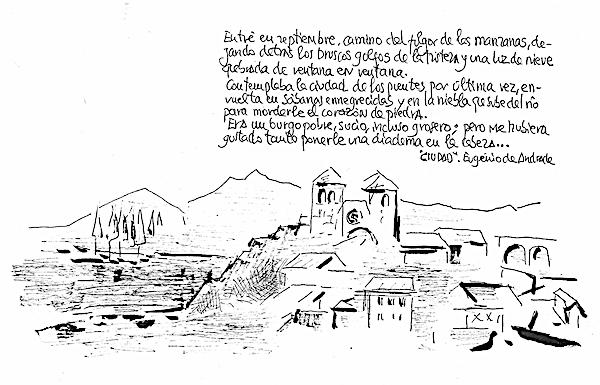 Entré en septiembre, camino del fulgor de las manzanas, de-
jando detrás los bruscos golfos de la tristeza y una luz de nieve
quebrada de ventana en ventana.
Contemplaba la ciudad de los puentes por última vez, en-
vuelta en sábanas ennegrecidas y en la niebla que sube del río
para morderle el corazón de piedra.
Era un burgo pobre, sucio, incluso grosero; pero me hubiera
gustado tanto ponerle una diadema en la cabeza...
"CIUDAD". Eugenio de Andrade
XX